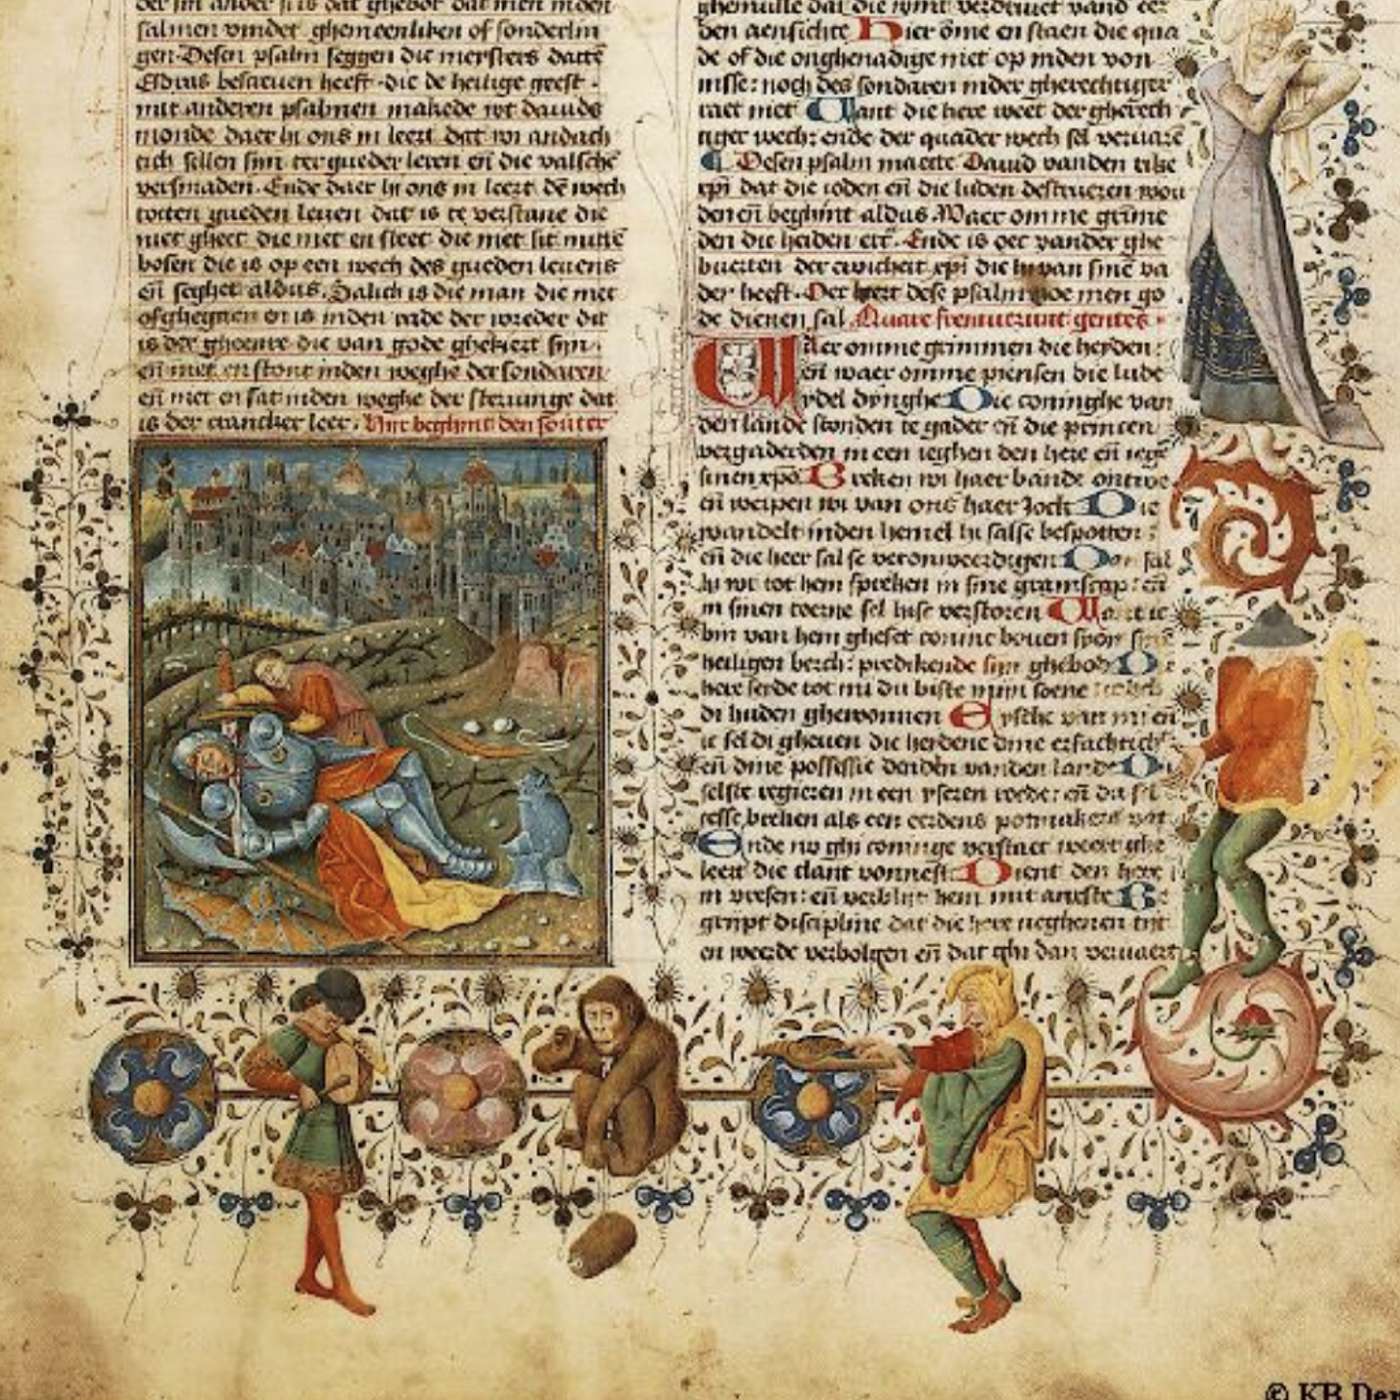 der in ander is is dat ghebot dat men inden
salmen vindet ghemeenliken of sonderlin
gen Desen psalm seggen die meysters datte
Esdras bescreuen heeft die de heilige geest
mit anderen psalmen makede wt dauids
monde daer hi ons in leert dat wi andach
tich sellen sijn ter gueder leren en̄ die valschē
versmaden Ende daer hi ons in leert dē wech
totten gueden leuen dat is te verstane die
niet gheet die niet en steet die niet sit mittē
bosen die is op een wech des gueden leuens
en̄ seghet aldus Salich is die man die niet
of ghegaen en is inden rade der wreder dit
is der ghoenre die van gode ghekeert sijn
en̄ niet en stont inden weghe der sondaren
en̄ niet en sat inden weghe der steruinge dat
is der crancker leer Hijr beghint den souter
ghemulle dat die wint verdriuet vand eer
den aensichte Hier ōme en staen die qua
de of die onghenadige niet op inden von
nisse: noch des sondaren inder gherechtiger
raet niet Want die here weet der gherech
tiger wech: ende der quader wech sel veruarē
Desen psalm maecte Dauid vanden rike
xp̄i dat die ioden en̄ die luden destrueren wou
den en̄ beghint aldus Waer omme grīme
den die heiden etc̄ Ende is oec vander ghe
buerten der ewicheit xp̄i die hi van sinē va
der heeft Der leert dese psalm hoe men go
de dienen sal Quare fremuerunt gentes
Waer omme grimmen die heyden:
en̄ waer omme piensen die lude
ydel dynghe Die coninghe van
den lande stonden te gader en̄ die princen
vergaderden in een ieghen den here en̄ iegē
sinen xp̄o Breken wi haer bande ontwe
en̄ werpen wi van ons haer Jock Die
wandelt inden hemel hi salse bespotten:
en̄ die heer sal se veronweerdigen Dan sal
hi wt tot hem spreken in sine gramscap: en̄
in sinen toerne sel hise verstoren Want ic
bin van hem gheset coninc bouen syon sijnē
heiligen berch: predikende sijn ghebod De
here seide tot mi du biste mijn soene ic heb
di huden ghewonnen Eysche van mi en̄
ic sel di gheuen die heidene dine erfachtich
en̄ dine possessie deinden vanden lande Du
selste regieren in een yseren roede: en̄ du sel
selse breken als een eerdens potmakers vat
Ende nu ghi coninge verstaet weert ghe
leert die tlant vonnest Dient den here
in vresen: en̄ verblijt hem mit anxste Be
gript discipline dat die here neghenen tijt
en weerde verbolgen en̄ dat ghi dan veruaert
© KB Den